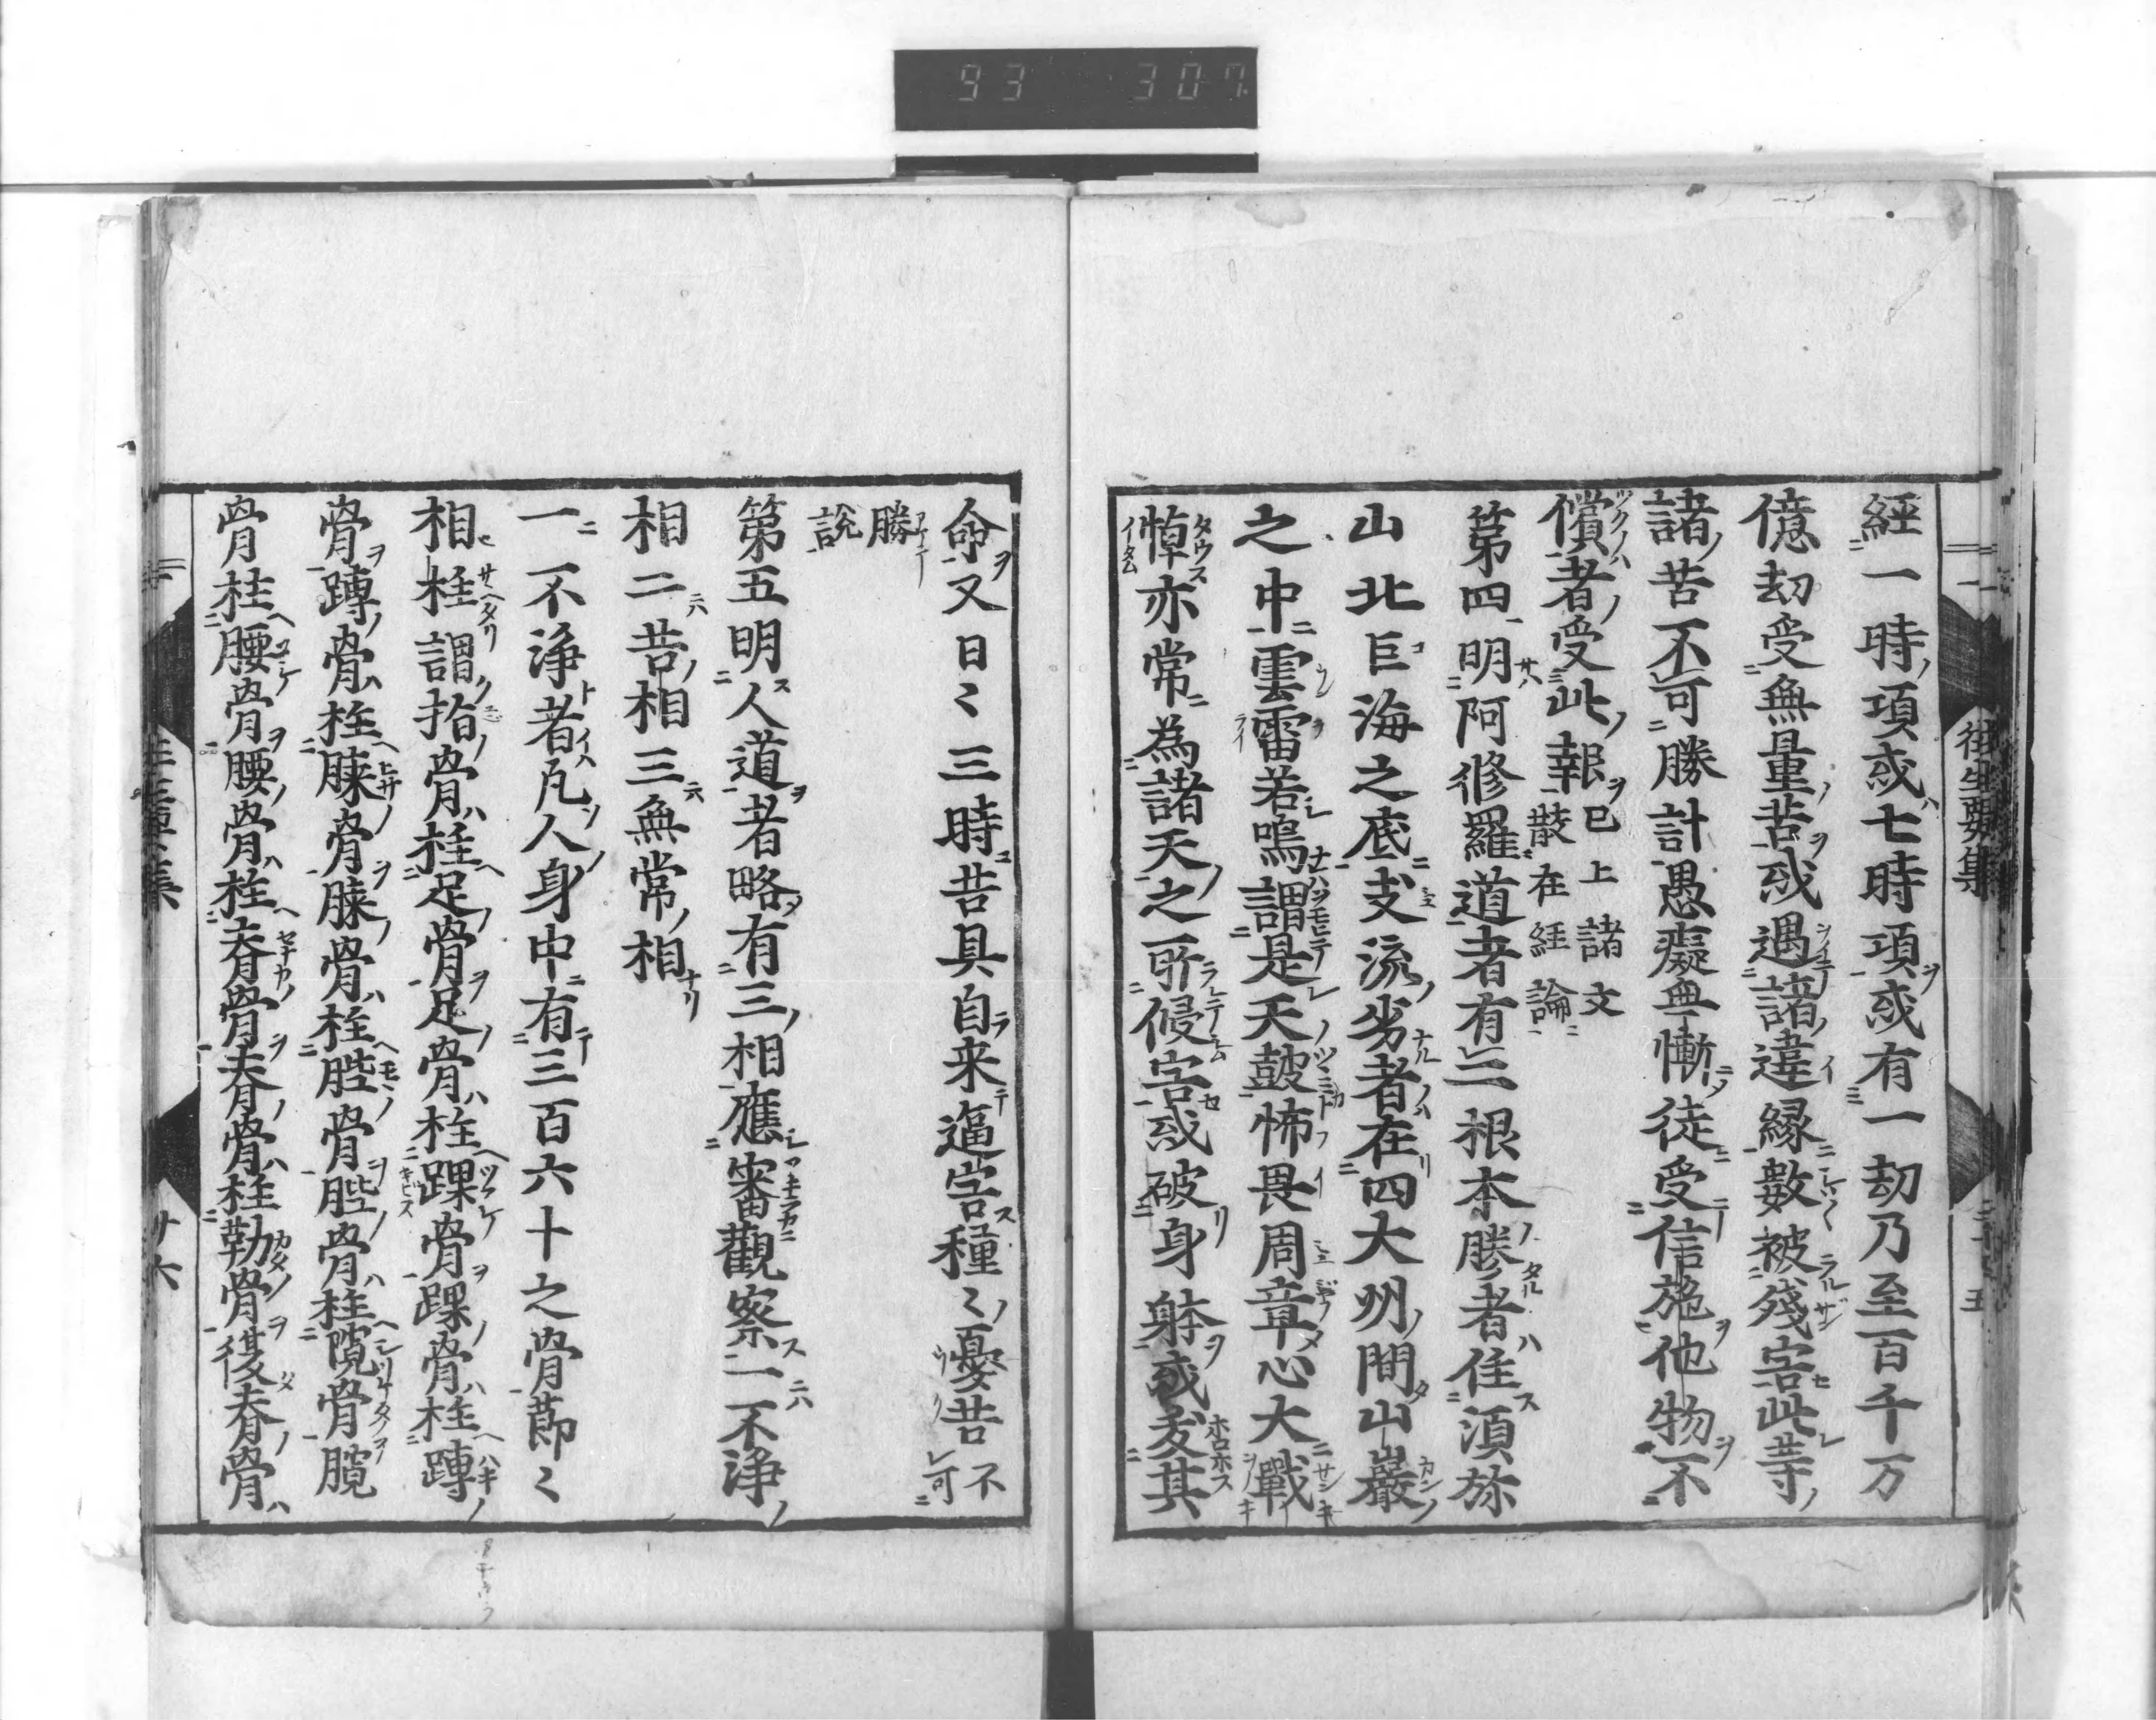 93 307
往生要集
經一時項或七時項或有一劫乃至百千万
億劫受無量苦或遇諸違縁數被殘害此等
諸苦不可勝計愚癡無慚徒受信施他物不
償者受此報已上諸文散在經論
第四明阿修羅道者有二根本勝者住須弥
山北巨海之底支流劣者在四大州間山巖
之中雲雷若鳴謂是天皷怖畏周章心大戰
悼亦常為諸天之所侵害或破身躰或夭其
命又日〻三時苦具自来逼害種〻憂苦不可
勝
説
第五明人道者略有三相應審觀察一不浄
相二苦相三無常相
一不浄者凡人身中有三百六十之骨節〻
相柱謂指骨柱足骨足骨柱踝骨踝骨柱䏝
骨䏝骨柱膝骨膝骨柱䏶骨䏶骨柱臗骨臗
骨柱腰骨腰骨柱脊骨脊骨柱勒骨復脊骨
廿六